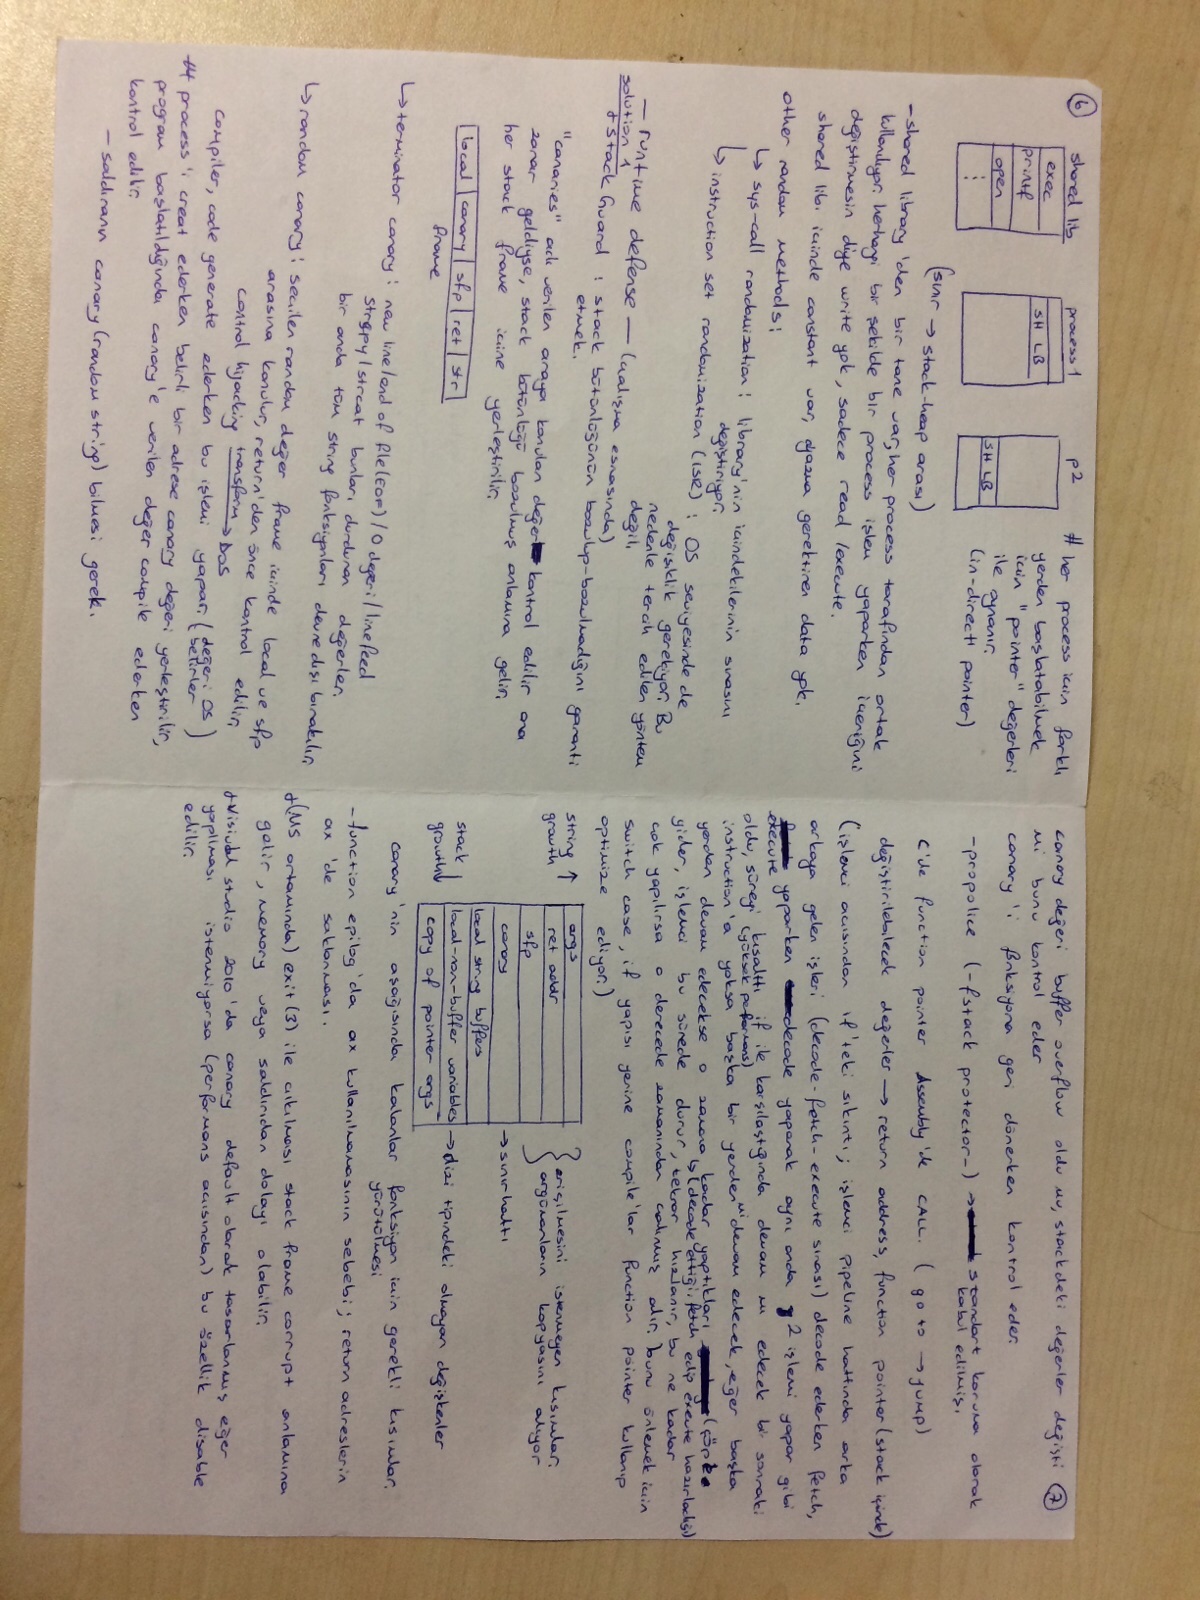 6
shared lib
exec
printf
open
:
process 1
SH LB
p2
SH LB
# her process için farklı
yerden başlatabilmek
için "pointer" değerleri
ile oynanır.
(in-directi pointer)
(sınır → stack-heap arası)
- shared library'den bir tane var, her process tarafından ortak
kullanılıyor. herhangi bir şekilde bir process işlem yaparken içeriğini
değiştirmesin diye write yok, sadece read/execute.
shared lib. içinde constant var, yazma gerektiren data yok.
other random methods:
↳ sys-call randomization : library'nin içindekilerinin sırasını
değiştiriyor.
↳ instruction set randomization (ISR) : OS seviyesinde de
değişiklik gerekiyor. Bu
nedenle tercih edilen yöntem
değil.
- runtime defense — (çalışma esnasında)
solution 1
+ Stack Guard : stack bütünlüğünün bozulup-bozulmadığını garanti
etmek.
"canaries" adı verilen araya konulan değer kontrol edilir ona
zarar geldiyse, stack bütünlüğü bozulmuş anlamına gelir.
her stack frame içine yerleştirilir.
local | canary | sfp | ret | str
frame
↳ terminator canary : new line/end of file(EOF)/0 değeri/linefeed
strcpy/strcat bunları durduran değerler.
bir anda tüm string fonksiyonları devre dışı bırakılır.
↳ random canary : seçilen random değer frame içinde local ve sfp
arasına konulur, return'den önce kontrol edilir.
control hijacking transform → DOS
compiler, code generate ederken bu işlemi yapar. (değeri OS
belirler)
process'i creat ederken belirli bir adrese canary değeri yerleştirilir,
program başlatıldığında canary'e verilen değer compile ederken
kontrol edilir.
- saldıranın canary (random string) bilmesi gerek.
7
canary değeri buffer overflow oldu mu, stackdeki değerler değişti
mi bunu kontrol eder
canary'i fonksiyona geri dönerken kontrol eder.
- propolice (-fstack protector-) → standart koruma olarak
kabul edilmiş.
C'de function pointer Assembly'de CALL. ( go to → jump)
değiştirilebilecek değerler → return address, function pointer (stack içinde)
(işlemci açısından if'teki sıkıntı; işlemci pipeline hattında arka
arkaya gelen işleri (decode-fetch-execute sırası) decode ederken fetch,
execute yaparken decode yaparak aynı anda 2 işlemi yapar gibi
oldu, süreyi kısalttı (yüksek performans) if ile karşılaştığında devam mı edecek bir sonraki
instruction'a yoksa başka bir yerden mi devam edecek, eğer başka
yerden devam edecekse o zamana kadar yaptıkları (çöpe
gider, işlemci bu sürede durur, tekrar hızlanır, bu ne kadar
iş (decode ettiği, fetch edip execute hazırladığı)
çok yapılırsa o derecede zamanından çalmış olur, bunu önlemek için
switch case, if yapısı yerine compile'lar function pointer kullanıp
optimize ediyor.)
string growth ↑
stack growth ↓
args
ret addr
sfp
canary
local string buffers
local-non-buffer variables
copy of pointer args
? erişilmesini istemeyen kısımlar.
argümanların kopyasını alıyor
→ sınır hattı
→ dizi tipindeki olmayan değişkenler
canary'nin aşağısında kalanlar fonksiyon için gerekli kısımlar.
yürütülmesi
- function epilog'da ax kullanılmamasının sebebi; return adreslerin
ax'de saklanması.
+ (MS ortamında) exit(3) ile çıkılması stack frame corrupt anlamına
gelir, memory veya saldırıdan dolayı olabilir.
+ Visiudal studio 2010'da canary default olarak tasarlanmış eğer
yapılması istenmiyorsa (performans açısından) bu özellik disable
edilir.